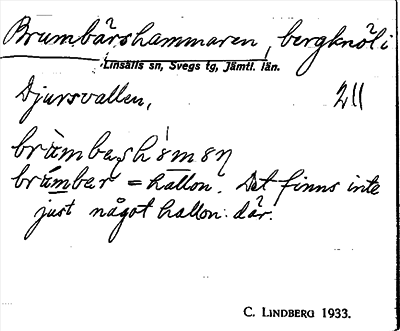 Brumbärshammaren, bergknöl i
Linsälls sn, Svegs tg, Jämtl. län.
Djursvallen,
211
brúmbar = hallon. Det finns inte
just något hallon där.
C. LINDBERG 1933.